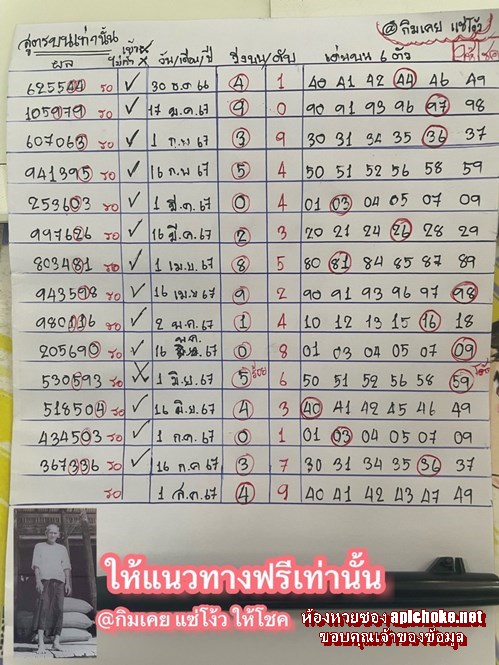 สูตรบนเท่านั้น
@กิมเคย แซ่โง้ว
ผล เข้า✓ ไม่เข้า X วัน/เดือน/ปี วิ่งบน/ดับ เด่นบน 6 ตัว
625544 รอ ✓ 30 ธ.ค 66 4 1 40 41 42 44 46 49
105979 รอ ✓ 17 ม.ค. 67 9 0 90 91 93 96 97 98
607063 รอ ✓ 1 ก.พ 67 3 9 30 31 34 35 36 37
941395 รอ ✓ 16 ก.พ 67 5 4 50 51 52 56 58 59
253603 รอ ✓ 1 มี.ค. 67 0 4 01 03 04 05 07 09
997626 รอ ✓ 16 มี.ค. 67 2 3 20 21 24 26 28 29
803481 รอ ✓ 1 เม.ย. 67 8 5 80 81 84 85 87 89
943598 รอ ✓ 16 เม.ย 67 9 2 90 91 93 96 97 98
980116 รอ ✓ 2 พ.ค. 67 1 4 10 12 13 15 16 18
205690 รอ ✓ 16 พ.ค. 67 0 8 01 03 04 05 07 09
530593 รอ X 1 มิ.ย. 67 5 6 50 51 52 56 58 59
518504 รอ ✓ 16 มิ.ย. 67 4 3 40 41 42 45 46 49
434503 รอ ✓ 1 ก.ค. 67 0 1 01 03 04 05 07 09
367336 รอ ✓ 16 ก.ค 67 3 7 30 31 34 35 36 37
รอ 1 ส.ค. 67 4 9 40 41 42 43 47 49
ให้แนวทางฟรีเท่านั้น
@กิมเคย แซ่โง้ว ให้โชค
ห้องหวยซอง aplchoke.net
ขอบคุณเจ้าของข้อมูล